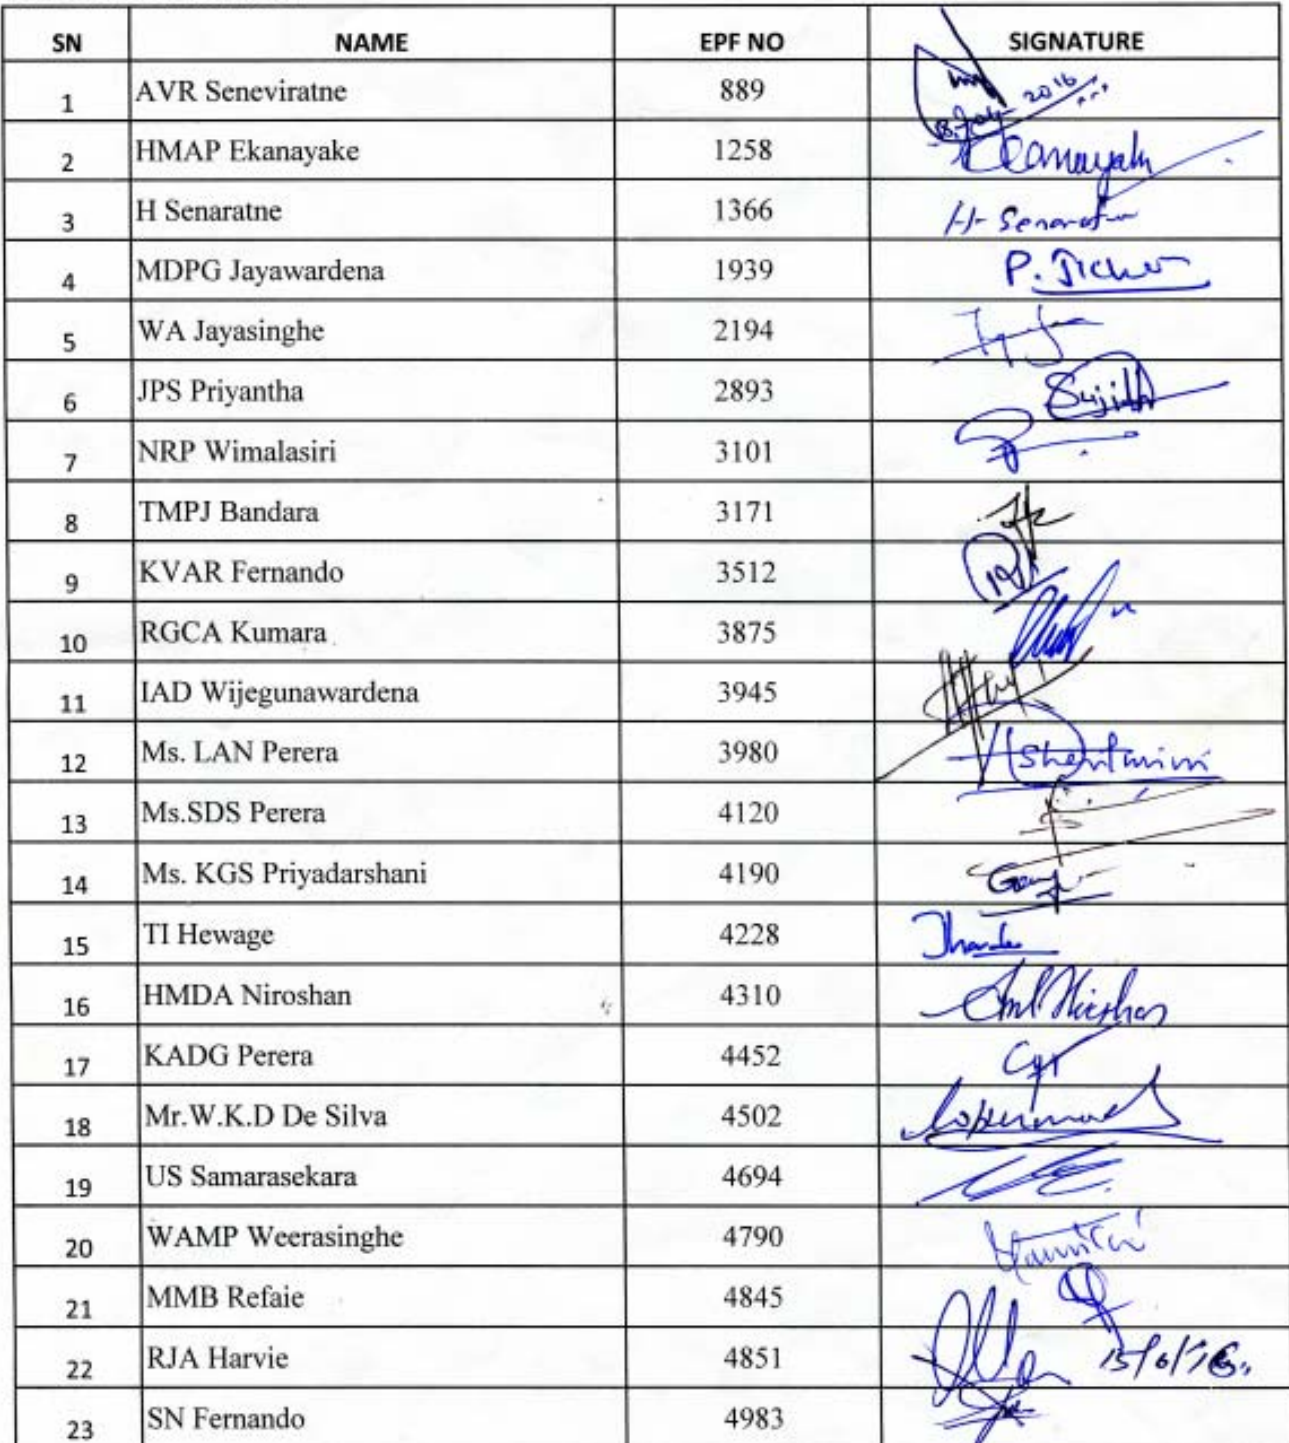 SN NAME EPF NO SIGNATURE
1 AVR Seneviratne 889
2016
2 HMAP Ekanayake 1258
3 H Senaratne 1366 H- Senarat
4 MDPG Jayawardena 1939
5 WA Jayasinghe 2194
6 JPS Priyantha 2893 Sujith
7 NRP Wimalasiri 3101
8 TMPJ Bandara 3171
9 KVAR Fernando 3512
10 RGCA Kumara 3875
11 IAD Wijegunawardena 3945
12 Ms. LAN Perera 3980
13 Ms.SDS Perera 4120
14 Ms. KGS Priyadarshani 4190
15 TI Hewage 4228
16 HMDA Niroshan 4310
17 KADG Perera 4452
18 Mr.W.K.D De Silva 4502
19 US Samarasekara 4694
20 WAMP Weerasinghe 4790
21 MMB Refaie 4845
22 RJA Harvie 4851
23 SN Fernando 4983